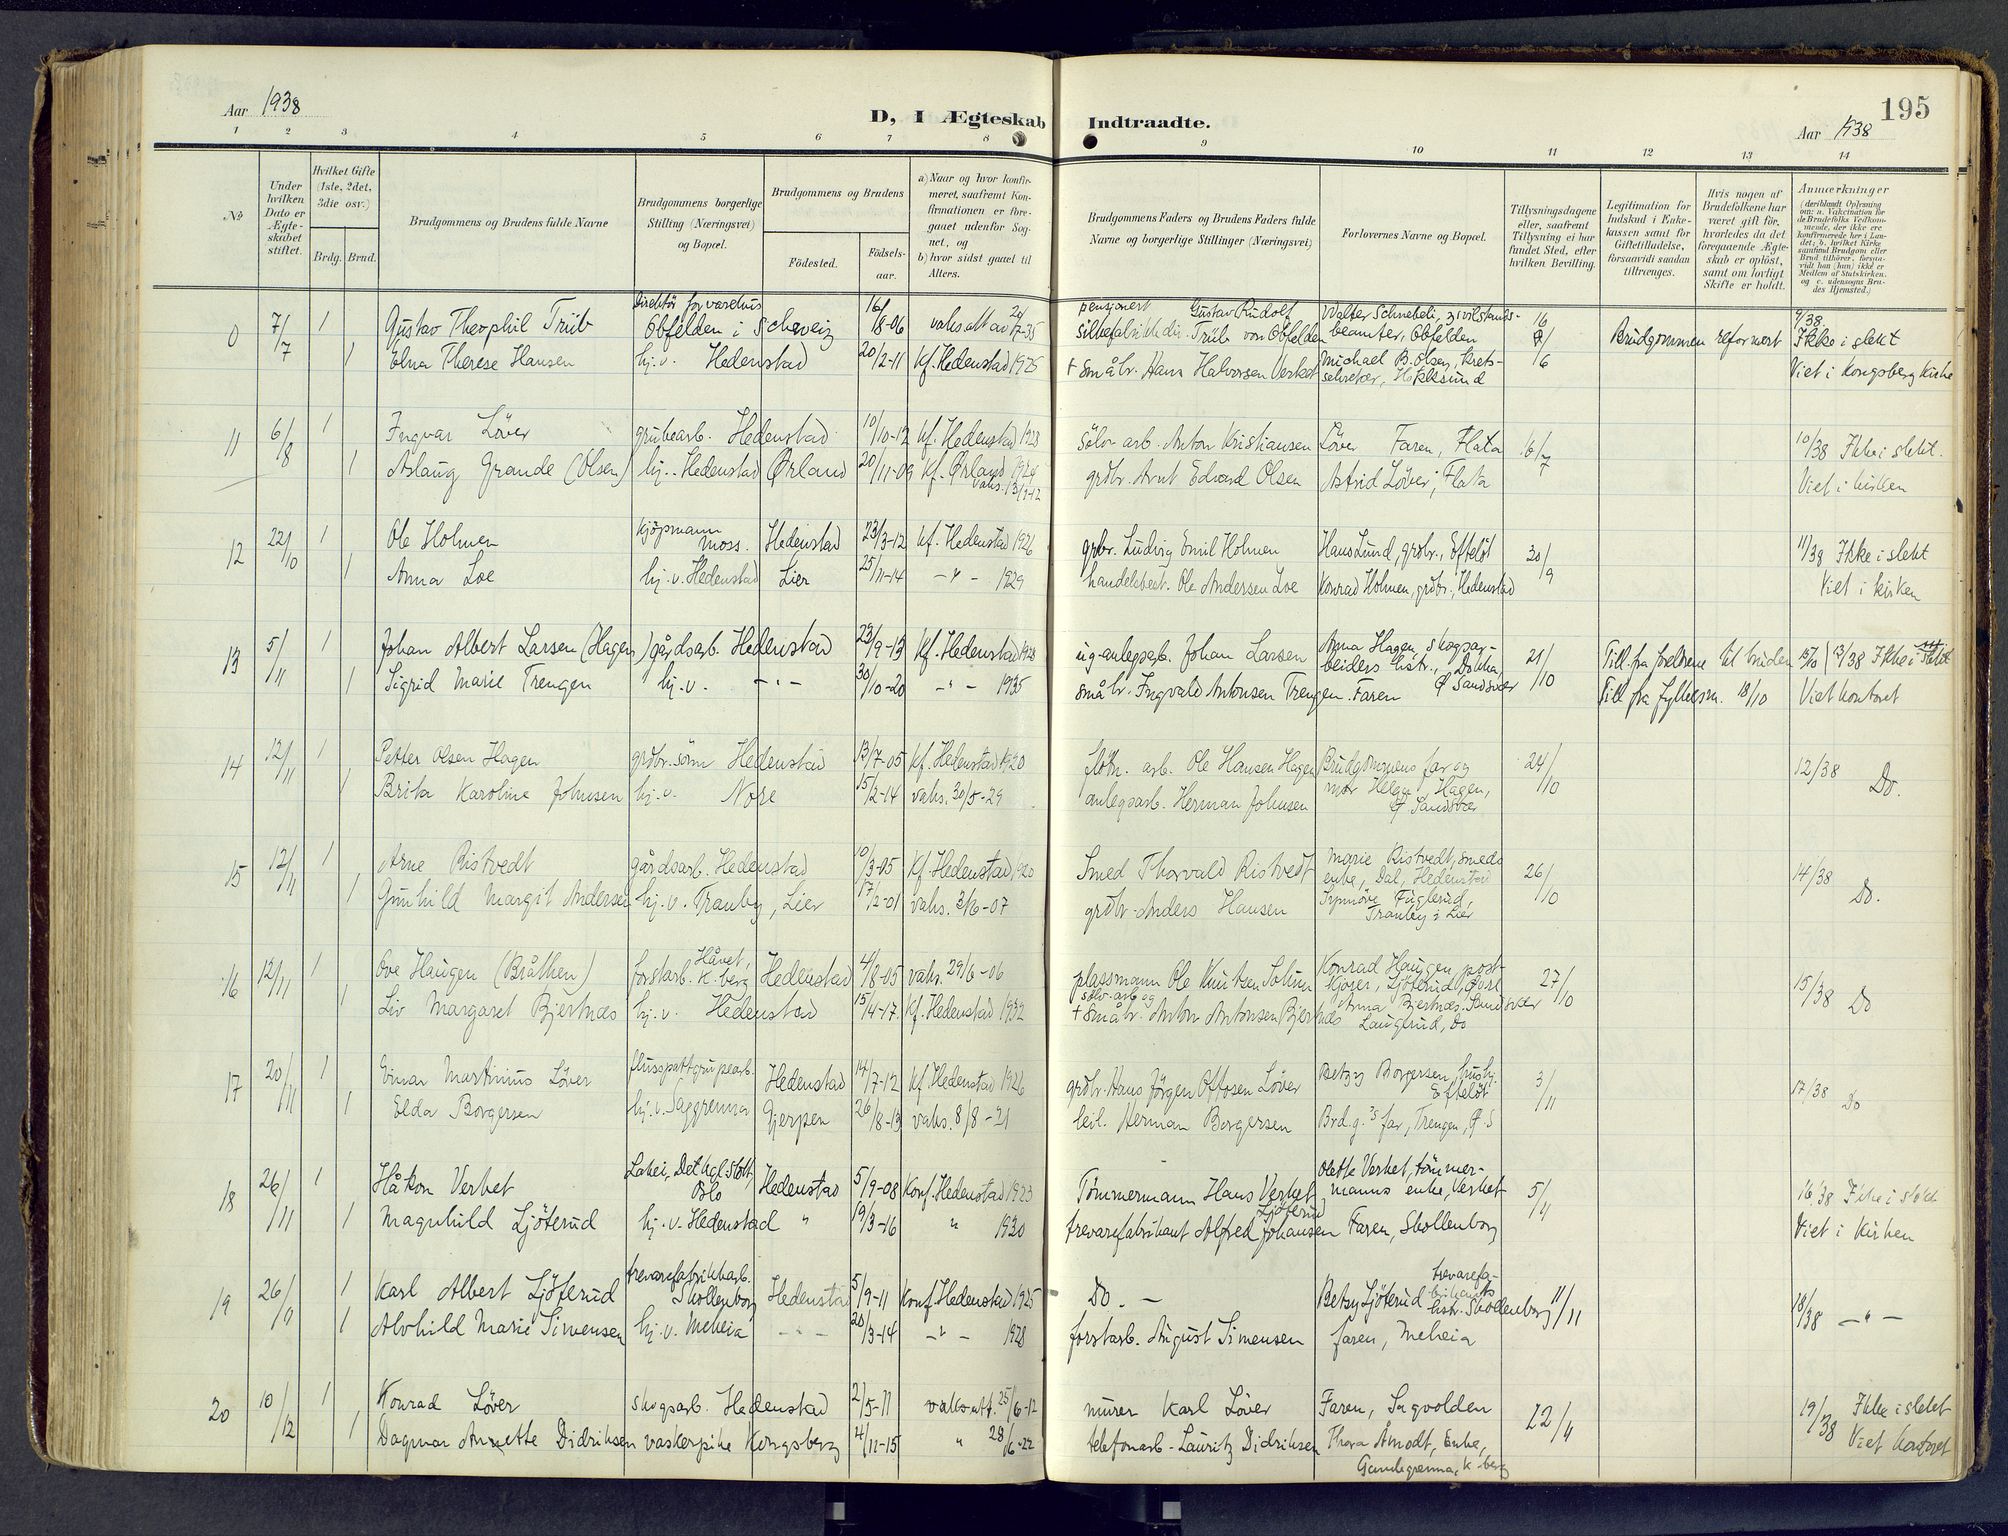 Aar 1938
D, I Ægteskab Indtraadte.
195
Aar 1938
1 2 3 4 5 6 7 8 9 10 11 12 13 14
No
Under hvilken Dato er Ægteskabet stiftet.
Hvilket Gifte (1ste, 2det, 3die osv.)
Brdg. Brud.
Brudgommens og Brudens fulde Navne
Brudgommens borgerlige Stilling (Næringsvei) og Bopæl.
Brudgommens og Brudens
Födested.
Födselsaar.
a) Naar og hvor konfirmeret, saafremt Konfirmationen er foregaaet udenfor Sognet, og
b) hvor sidst gaaet til Alters.
Brudgommens Faders og Brudens Faders fulde Navne og borgerlige Stillinger (Næringsvei)
Forlovernes Navne og Bopæl.
Tillysningsdagene eller, saafremt Tillysning ei har fundet Sted, efter hvilken Bevilling.
Legitimation for Indskud i Enkekassen samt for Giftetilladelse, forsaavidt saadan tiltrænges.
Hvis nogen af Brudefolkene har været gift för, hvorledes da det foregaaende Ægteskab er oplöst, samt om lovligt Skifte er holdt.
Anmærkninger
(deriblandt Oplysning om: a. Vakcination for de Brudefolks Vedkommende, der ikke ere konfirmerede her i Landet; b. hvilket Kirkesamfund Brudgom eller Brud tilhörer, forsaavidt han (hun) ikke er Medlem af Statskirken. og c. udensogns Brudes Hjemsted.)
0 7/7 1 Gustav Theophil Trüb Direktör for varehus Obfelden i Schweiz 16/8-06 vaks.att av 20/7-35 pensjonert silkefabrikkdir. Gustav Rudolf Trüb von Obfelden Walter Schnebeli, zivilstandsbeamter, Obfelden 16 Brudgommen reformert 9/38 Ikke i slekt
1 Elna Therese Hansen hj.v. Hedenstad 20/2-11 Kf. Hedenstad 1925 + småbr. Hans Halvorsen Verket Michael B. Olsen, kretssekretær, Hokksund /6 Viet i Kongsberg Kirke
11 6/8 1 Ingvar Löver grubearb. Hedenstad 10/10-12 Kf. Hedenstad 1928 Sölv. arb. Anton Kristiansen Löver Faren, Flata 6/7 10/38 Ikke i slekt.
1 Aslaug Grande (Olsen) hj.. Hedenstad Ørland 20/11-09 Kf. Ørland 1924 grdbr. Arnt Edvard Olsen Astrid Löver, Flata Viet i kirken
12 22/10 1 Ole Holmen Kjöpmann Moss. Hedenstad 23/3-12 Kf. Hedenstad 1926 grbr. Ludvig Emil Holmen Hans Lund, grdbr., Efteløt 30/9 11/38 Ikke i slekt
1 Anna Loe hj.v. Hedenstad Lier 25/11-14 — " — 1929 handelsbest. Ole Andersen Loe Konrad Holmen, grdbr., Hedenstad Viet i kirken
13 5/11 1 Johan Albert Larsen (Hagen) gårdsarb. Hedenstad 23/9-13 Kf. Hedenstad 1928 Johan Larsen Anna Hagen, skogsarbeiders hstr., Dokka, Ø Sandsvær 21/10 Till fra foreldrene til bruden 15/10 13/38 Ikke i slekt
1 Sigrid Marie Trengen hj.v. — " — 30/10-20 — " — 1935 småbr. Ingvald Antonsen Trengen Faren Till fra fylkesm. 18/10 Viet kontoret
14 12/11 1 Petter Olsen Hagen grdbr. sönn Hedenstad 13/7-05 Kf. Hedenstad 1920 flötn. arb. Ole Hansen Hagen Brudgommens far og mor Helga Hagen, Ø Sandsvær 24/10 12/38 Do.
1 Brita Karoline Johnsen hj.v. Nore 15/2-14 vaks. 30/5-29 anlegsarb. Herman Johnsen
15 12/11 1 Arne Ristvedt gårdsarb. Hedenstad 10/3-05 Kf. Hedenstad 1920 Smed Thorvald Ristvedt Marie Ristvedt, smeds enke, Dal, Hedenstad 26/10 14/38 Do.
1 Gunhild Margit Andersen hj.v. Tranby, Lier 17/2-01 vaks. 3/6-07 grdbr. Anders Hansen Synnöve Fuglerud, Tranby i Lier
16 12/11 1 Ove Haugen (Bråthen) forstarb. Håvet, K.berg Hedenstad 4/8-05 vaks. 29/6-06 plassmann Ole Knutsen Konrad Haugen, postkjører, Ljöterud, Øvre Sandsvær 27/10 15/38 Do
1 Liv Margaret Bjertnes hj.v. Hedenstad 15/4-17. Kf. Hedenstad 1932 + sölv. arb og småbr. Anton Antonsen Bjertnes Anna Bjertnes, Laugerud, Do
17 20/11 1 Einar Martinius Löver flusspattgrupearb. Hedenstad 14/7-12 Kf. Hedenstad 1926 grdbr. Hans Jörgen Ottosen Löver Betzy Borgersen, husbj. Efteløt 3/11 17/38 Do
1 Elda Borgersen hj.v. Saggrenna Gjerpen 26/8-13 vaks. 8/8-21 leil. Herman Borgersen Brd.g.s far, Trengen, Ø. S
18 26/11 1 Håkon Verket Lakei, Det kgl. Slott, Oslo Hedenstad 5/9-08 Konf. Hedenstad 1923 Tömmermann Hans Verket Olette Verket, tömmermanns enke, Verket 5/4 16/38 Ikke i slekt
1 Magnhild Ljöterud hj.v. Hedenstad " 19/3-16 " 1930 trevarefabrikant Alfred Johansen Ljöterud Faren, Skollenborg Viet i Kirken
19 26/9 1 Karl Albert Ljöterud trevarefabrikkarb. Skollenborg Hedenstad 5/9-11 Konf. Hedenstad 1925 Do. — Betzy Ljöterud trevarefabrikants hstr. Skollenborg 11/11 18/38 — " —
1 Alvhild Marie Simensen hj.v. Meheia — " — 20/3-14 — " — 1928 forstarb. August Simensen faren, Meheia
20 10/12 1 Konrad Löver skogsarb. Hedenstad 2/5-11 vaks.att. 25/6-12 murer Karl Löver Faren, Sagvolden 22/4 19/38 Ikke i slekt
1 Dagmar Annette Didriksen vaskepike Kongsberg 4/11-15 " 28/6-22 telefonarb. Lauritz Didriksen Thora Åmodt, Enke, Gamlegrenna, K.berg Viet Kontoret